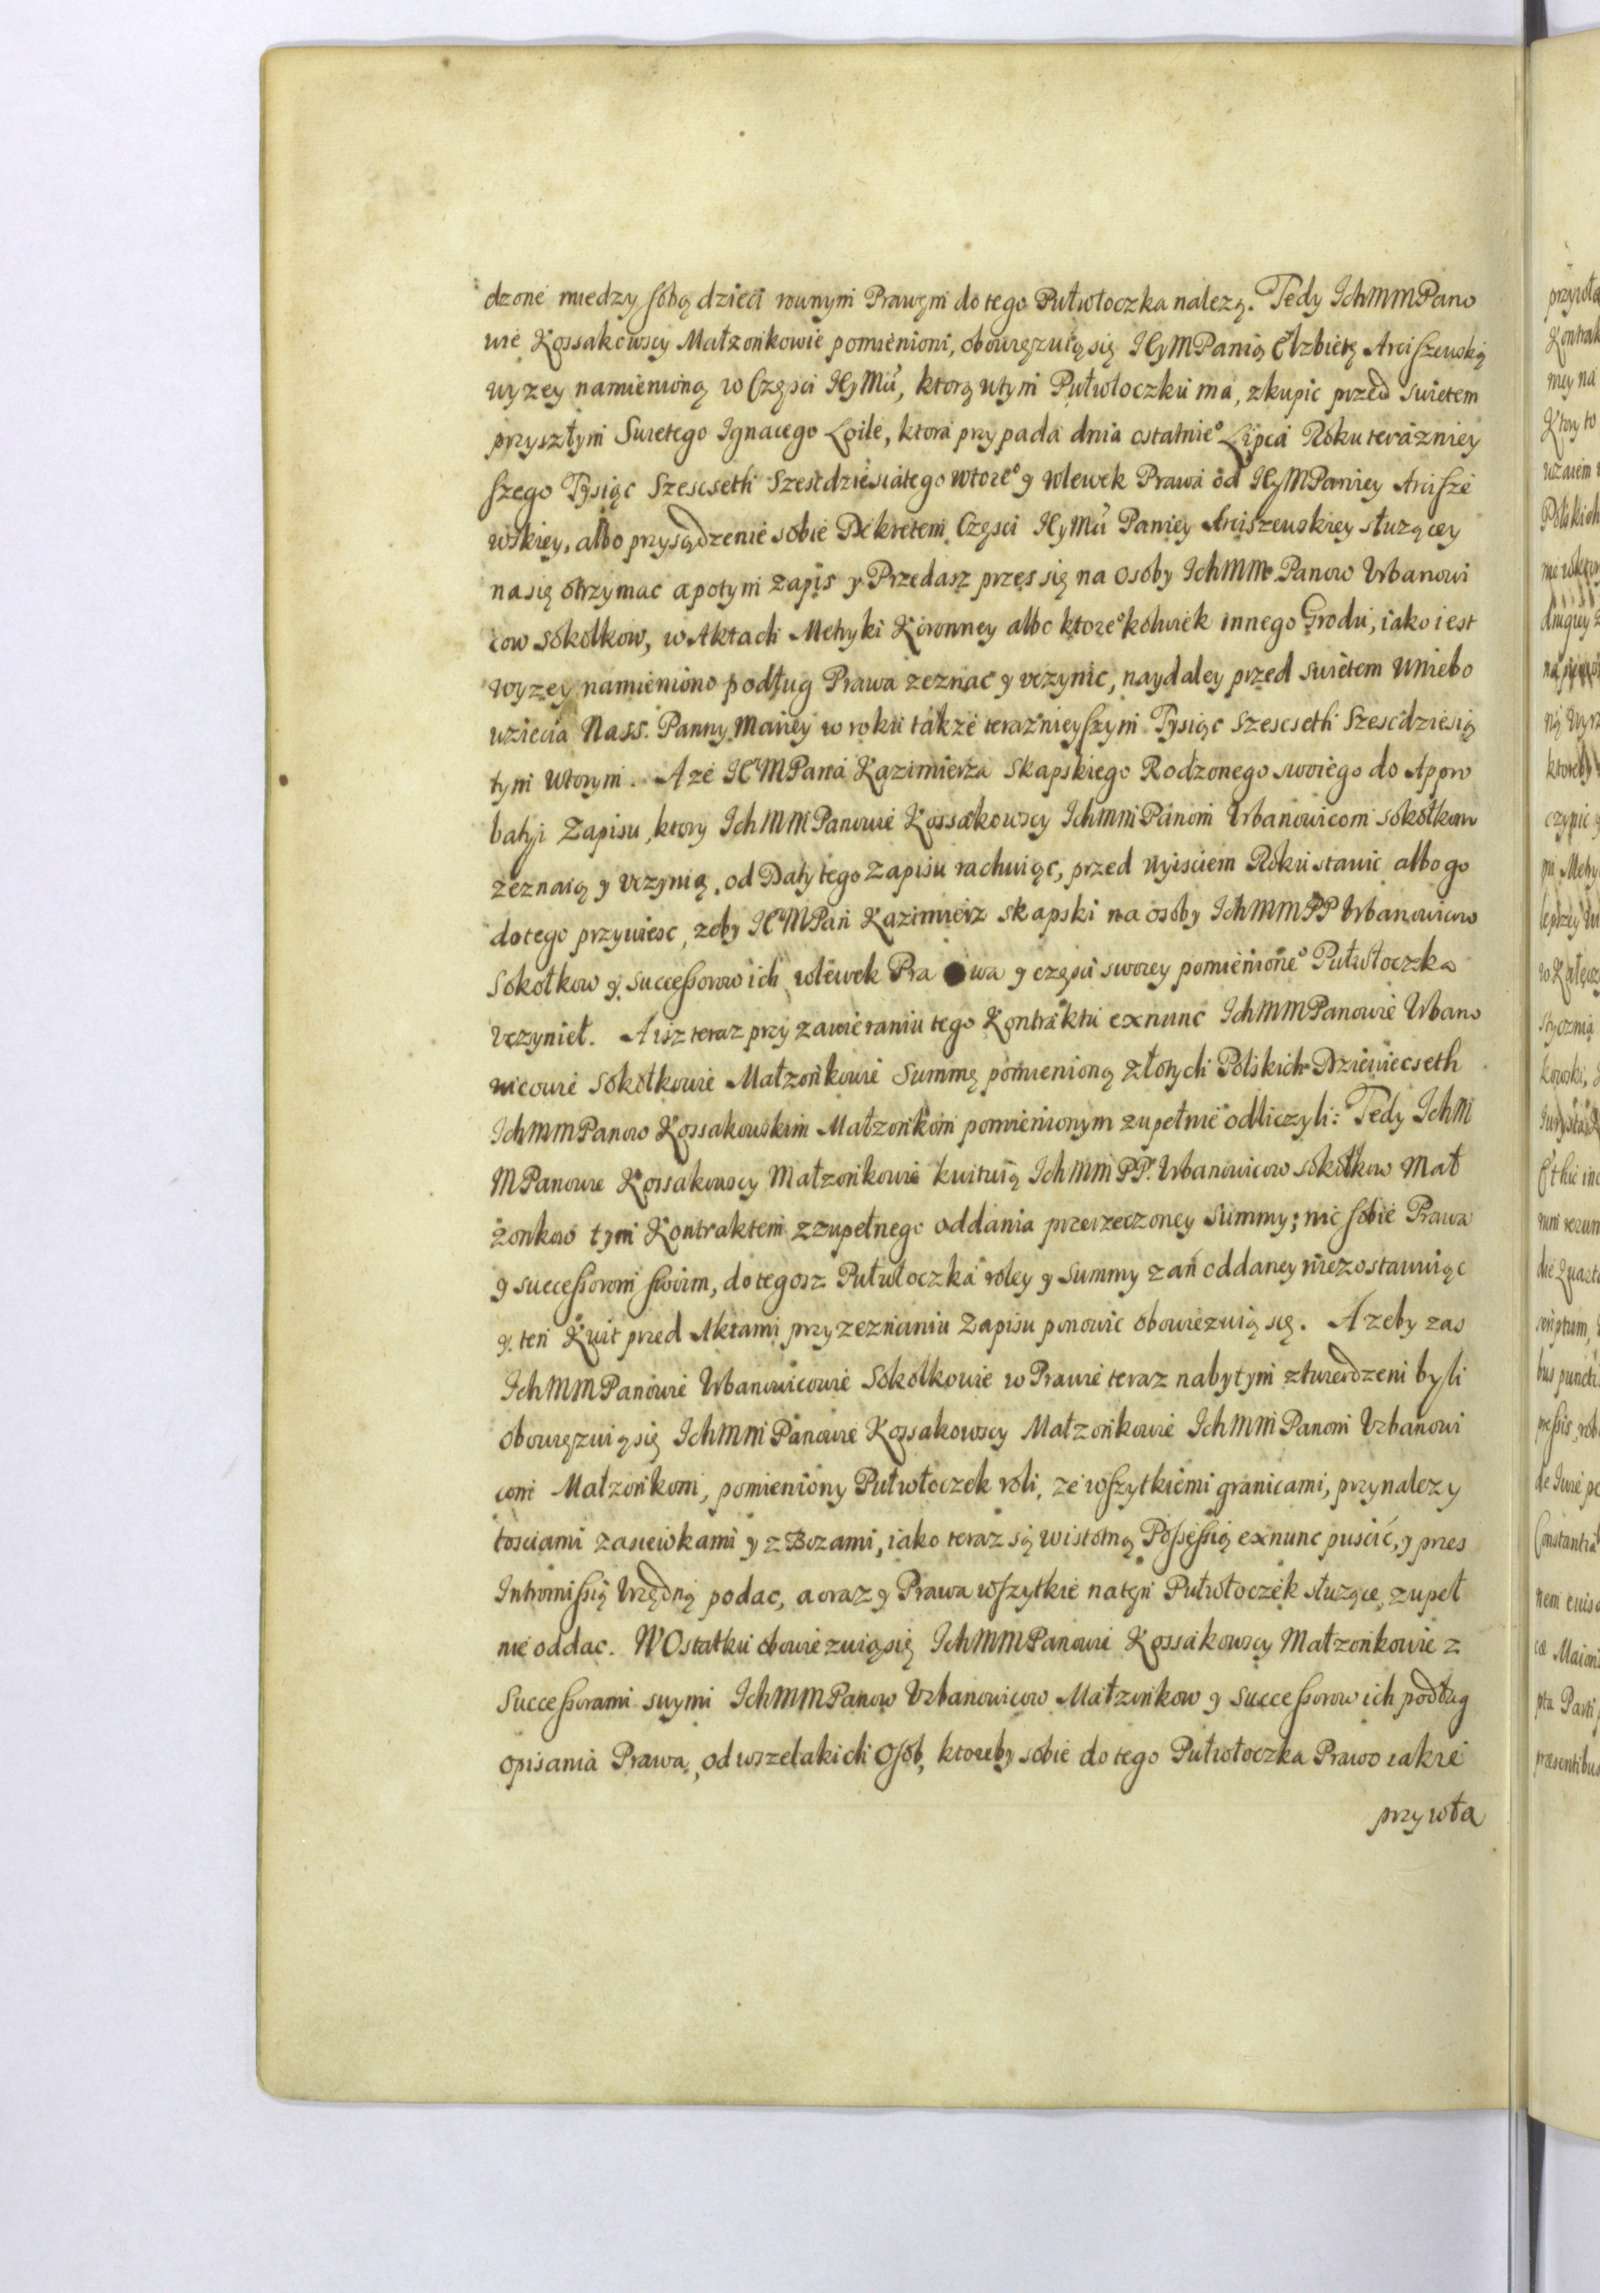 dzone miedzy sobą dzieci rownym Prawem do tego Pułwłoczka należą. Tedy IchMMPano
wie Kossakowscy Małżonkowie pomienioni, obowięzuią się IeyMPanią Elżbietę Arciszewską
wyżey namienioną w Części IeyMći, ktorą w tym Pułwłoczku ma, zkupic przed swietem
przyszłym Swietego Ignacego Loile, ktora przypada dnia ostatnieº Lipca Roku terazniey
szego Tysiąc Szescseth Szesćdziesiatego wtoreº y wlewek Prawa od IeyMPaniey Arcisze
wskiey, albo przysądzenie sobie Dekretem Części IeyMći Paniey Arciszewskiey służącey
na się otrzymac a potym zapis y Przedasz przes się na osoby IchMM Panow Urbanowi
cow Sokołkow, w Aktach Metryki Koronney albo ktoreºkolwiek innego Grodu, iako iest
wyżey namieniono podług Prawa zeznac y uczynic, naydaley przed swietem Wniebo
wziecia Nass. Panny Mariey w roku także teraznieyszym Tysiąc Szescseth Szesćdziesią
tym wtorym. A że IeMPana Kazimierza Skapskiego Rodzonego swoiego do Appro
batyi Zapisu, ktory IchMMPanowie Kossakowscy IchMMPanom Urbanowicom Sokołkom
zeznaią y uczynią, od Daty tego Zapisu rachuiąc, przed wyisciem Roku stawic albo go
do tego przywiesc, żeby IeMPan Kazimierz Skapski na osoby IchMMPP Urbanowicow
Sokołkow y Successorow ich wlewek Pra wa y części swoiey pomienioneº Pułwłoczka
uczynieł. A isz teraz przy zawieraniu tego Kontraktu exnunc IchMMPanowie Urbano
wicowie Sokołkowie Małżonkowie Summę pomienioną Złotych Polskich Dziewiecseth
IchMMPanow Kossakowskim Małżonkom pomienionym zupełnie odliczyli: Tedy IchM
MPanowie Kossakowscy Małżonkowie kwituią IchMMPP. Urbanowicow Sokołkow Mał
żonkow tym Kontraktem z zupełnego oddania przerzeczoney Summy; nic sobie Prawa
y successorom swoim, do tegosz Pułwłoczka roley y Summy zań oddaney niezostawuiąc
y ten Kwit przed Aktami przy zeznaniu Zapisu ponowic obowiezuią się. A żeby zas
IchMMPanowie Urbanowicowie Sokołkowie w Prawie teraz nabytym ztwierdzeni byli
obowięzuią się IchMMPanowie Kossakowscy Małżonkowie IchMMPanom Urbanowi
com Małżonkom, pomieniony Pułwłoczek roli, ze wszytkiemi granicami, przynależy
tosciami zasiewkami y z Bozami, iako teraz są w istotną Possessią exnunc puscić, y przes
Intromissią Urzędną podac, a oraz y Prawa wszytkie na ten Pułwłoczek służące, zupeł
nie oddac. W Ostatku obowiezuią się IchMMPanowie Kossakowscy Małżonkowie z
Successorami swymi IchMMPanow Urbanowicow Małżonkow y Successorow ich podług
opisania Prawa, od wszelakich Osob, ktoreby sobie do tego Pułwłoczka Prawo iakie
przywła